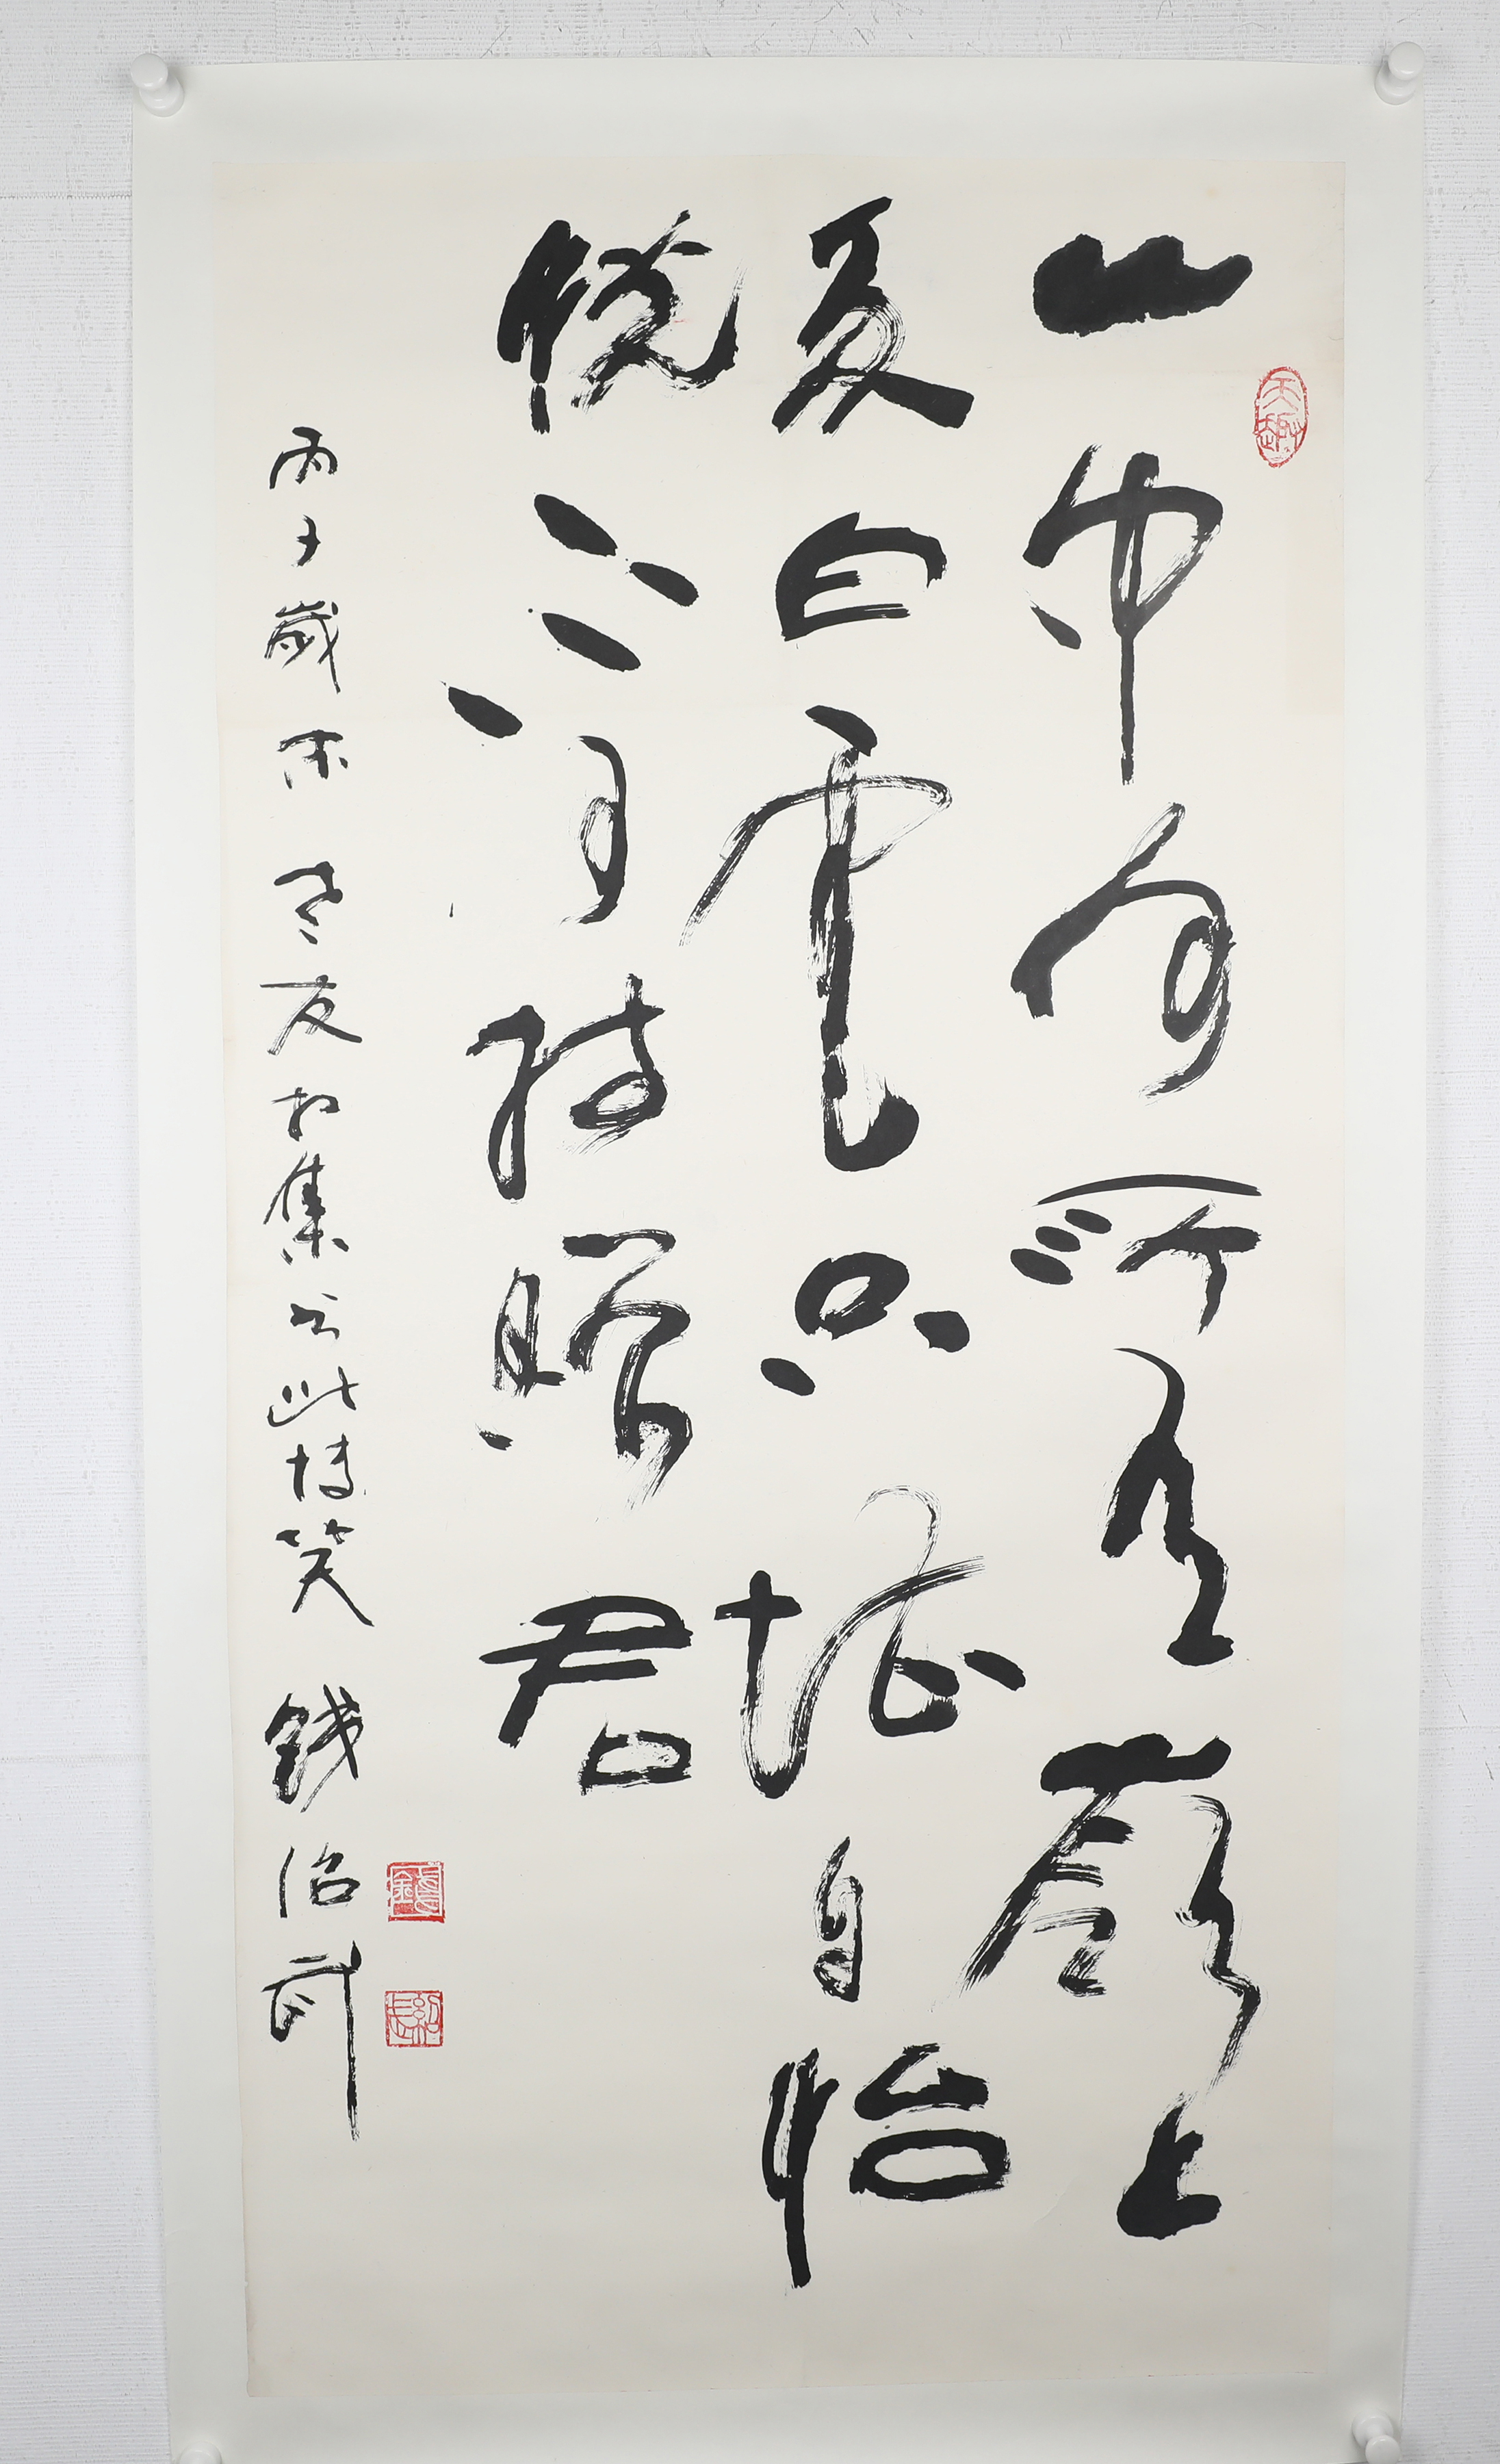 山中何所有嶺上
多白雲只堪自怡
悅不可持贈君
丙子歲末老友相集書此博笑 錢紹武
天趣